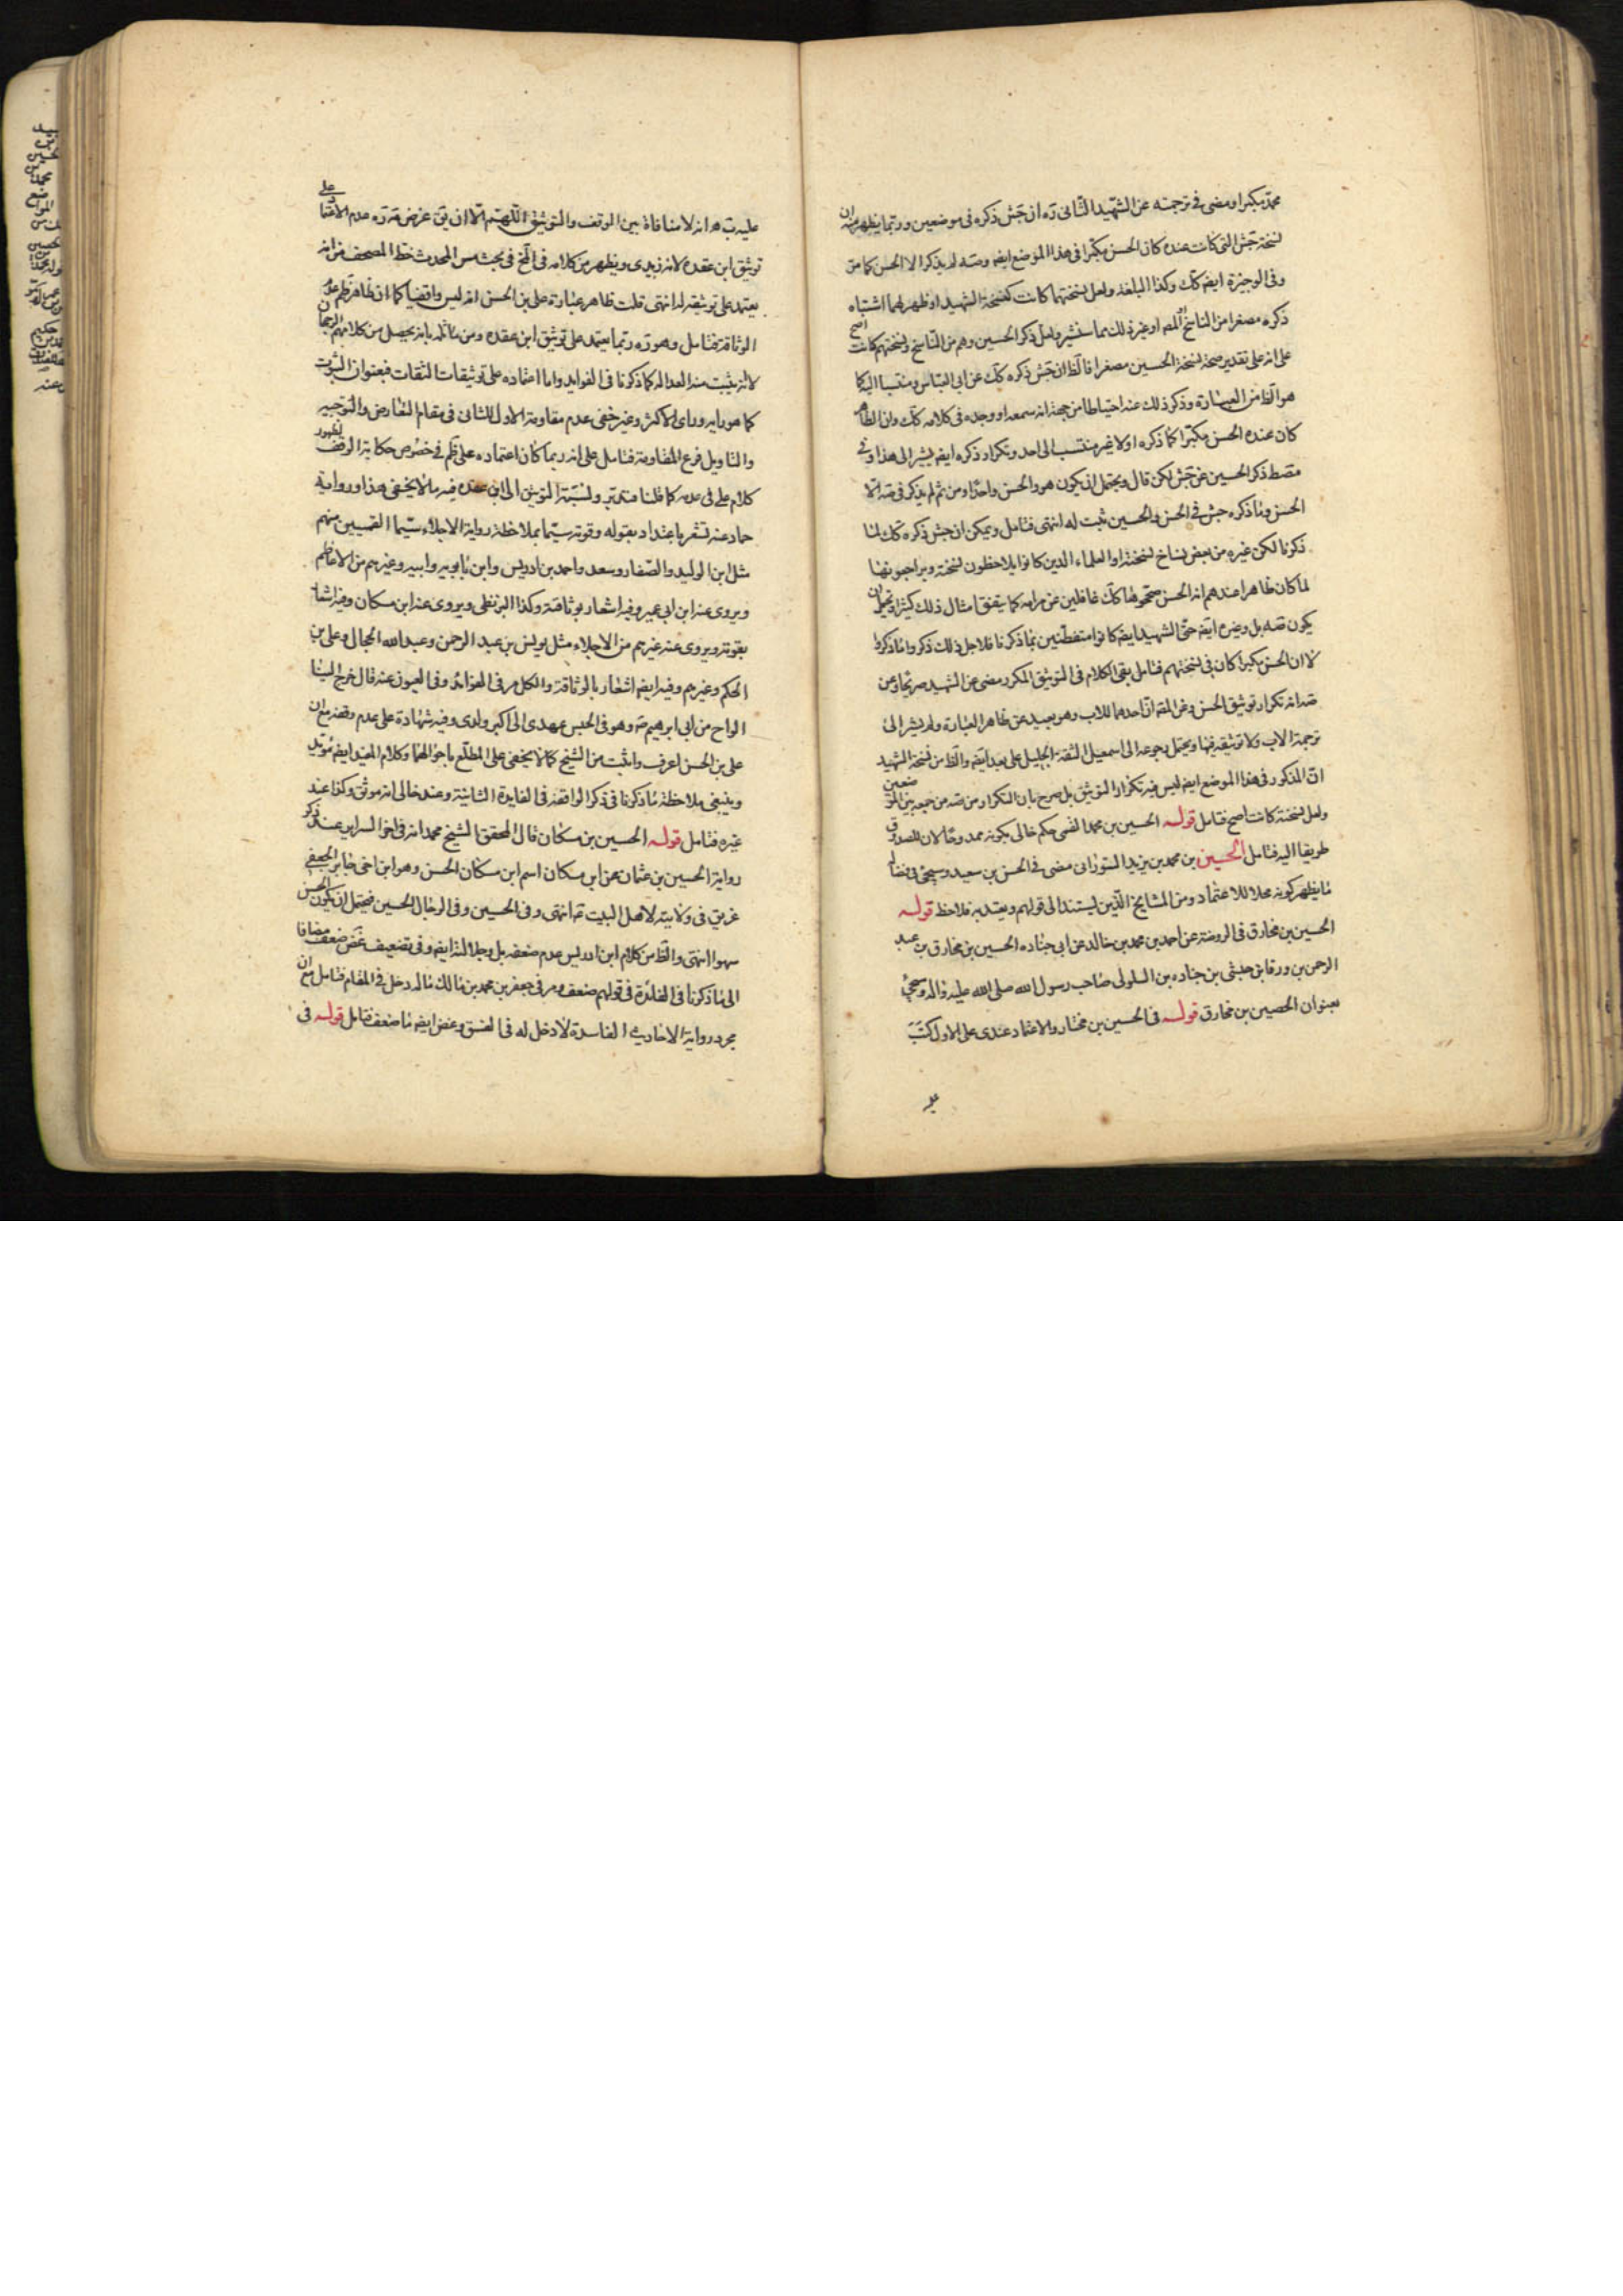 محمد مكبرا ومضى فى ترجمته عن الشهيد الثانى ره ان جش ذكره فى موضعين وربما يظهر منه ان
نسخة جش التى كانت عنده كان الحسن مكبرا فى هذا الموضع ايضا وصه لم يذكر الا الحسن كما مر
وفى الوجيزة ايضا كك وكذا البلغة ولعل نسختهما كانت كنسخة الشهيد او ظهر لهما اشتباه
ذكره مصغرا من الناسخ او المصه او غير ذلك مما سنشير ولعل ذكر الحسين وهم من الناسخ ونسختهم كانت اصح
على انه على تقدير صحة نسخة الحسين مصغرا فالظ ان جش ذكره كك عن ابى العباس ومنتسبا اليه كما
هو الظ من العبارة وذكر ذلك عنه احتياطا من جهة انه سمعه او وجده فى كلامه كك وان الظاهر
كان عنده الحسن مكبرا كما ذكره اولا غير منتسب الى احد وتكرار ذكره ايضا يشير الى هذا وفى
مصط ذكر الحسين عن جش لكن قال ويحتمل ان يكون هو والحسن واحدا ومن ثم لم يذكر فى صه الا
الحسن وما ذكره جش فى الحسن والحسين ثبت له انتهى فتامل ويمكن ان جش ذكره كك لما
ذكرنا لكن غيره من بعض نساخ نسخته او العلماء الذين كانوا يلاحظون نسخته ويراجعونها
لما كان ظاهرا عندهم انه الحسن صححوها كك غافلين عن مرامه كما يتفق امثال ذلك كثيرا ويحتمل ان
يكون صه بل وغيره ايضا حتى الشهيد ايضا كانوا متفطنين بما ذكرنا فلاجل ذلك ذكروا ما ذكروا
لا ان الحسن مكبرا كان فى نسختهم فتامل بقى الكلام فى التوثيق المكرر مضى عن الشهيد صريحا وعن
صه انه تكرار توثيق الحسن وعن المصه ان احدهما للاب وهو بعيد عن ظاهر العبارة ولم يشير الى
ترجمة الاب ولا توثيقه فيها ويحتمل رجوعه الى اسمعيل الثقة الجليل على بعد ايضا والظ من نسخة الشهيد
ان المذكور فى هذا الموضع ايضا ليس فيه تكرار التوثيق بل صرح بان التكرار من صه من جمعه بين الموضعين
ولعل نسخته كانت اصح فتامل قوله الحسين بن محمد القمى حكم خالى بكونه ممدوحا لان للصدوق
طريقا اليه فتامل الحسين بن محمد بن يزيد السورانى مضى فى الحسن بن سعيد وسيجئ فى فضاله
ما يظهر كونه محلا للاعتماد ومن المشايخ الذين يستند الى قولهم ويعتد به فلاحظ قوله
الحسين بن مخارق فى الروضة عن احمد بن محمد بن خالد عن ابى جناده الحسين بن مخارق بن عبد
الرحمن بن ورقا بن حبشى بن جناده بن السلولى صاحب رسول الله صلى الله عليه واله وسيجئ
بعنوان الحصين بن مخارق قوله فى الحسين بن مختار والاعتماد عندى على الاول كتب
عليه
عليه ب هـ انه لا منافاة بين الوقف والتوثيق اللهم الا ان يق غرض مه ره عدم الاعتماد على
توثيق ابن عقده لانه زيدى ويظهر من كلامه فى المخ فى بحث مس المحدث خط المصحف من انه
يعتمد على توثيقه له انتهى قلت ظاهر عبارة على بن الحسن انه ليس واقفيا كما ان ظاهر ظم عدم
الوثاقة فتامل وهو ره ربما يعتمد على توثيق ابن عقده ومن ماثله بانه يحصل من كلامهم الرجحان
لا انه يثبت منه العدالة كما ذكرنا فى الفوايد واما اعتماده على توثيقات الثقات فبعنوان الثبوت
كما هو رايه وراى الاكثر وغير خفى عدم مقاومة الاول للثانى فى مقام التعارض والتوجيه
والتاويل فرع المقاومة فتامل على انه ربما كان اعتماده على ظم فى خصوص حكاية الوقف لظهور
كلام على فى عدمه كما قلنا فتدبر ونسبة التوثيق الى ابن عقده فيه ما لا يخفى هذا ورواية
حماد عنه تشعر باعتداد بقوله وقوته سيما بملاحظة رواية الاجلاء سيما القميين منهم
مثل ابن الوليد والصفار وسعد واحمد بن ادريس وابن بابويه وابيه وغيرهم من الاعاظم
ويروى عنه ابن ابى عمير وفيه اشعار بوثاقته وكذا البزنطى ويروى عنه ابن مسكان وفيه اشعار
بقوته ويروى عنه غيرهم من الاجلاء مثل يونس بن عبد الرحمن وعبد الله الحجال وعلى بن
الحكم وغيرهم وفيه ايضا اشعار بالوثاقة والكل مر فى الفوائد وفى العيون عنه قال خرج الينا
الواح من ابى ابرهيم ع وهو فى الحبس عهدى الى اكبر ولدى وفيه شهادة على عدم وقفه مع ان
على بن الحسن اعرف واثبت من الشيخ كما لا يخفى على المطلع باحوالهما وكلام المفيد ايضا مؤيد
وينبغى ملاحظة ما ذكرنا فى ذكر الواقفة فى الفايدة الثانية وعند خالى انه موثق وكذا عند
غيره فتامل قوله الحسين بن مسكان قال المحقق الشيخ محمد انه فى اخر السراير عند ذكر
رواية الحسين بن عثمان عن ابن مسكان اسم ابن مسكان الحسن وهو ابن اخى جابر الجعفى
غريق فى ولايته لاهل البيت ع انتهى وفى الحسين وفى الرجال الحسين فيحتمل ان يكون الحسن
سهوا انتهى والظ من كلام ابن ادريس عدم ضعفه بل وجلالته ايضا وفى تضعيف غض ضعف مضافا
الى ما ذكرنا فى الفائدة فى قولهم ضعف ومر فى جعفر بن محمد بن مالك ماله دخل فى المقام فتامل مع ان
مجرد رواية الاحاديث الفاسدة لا دخل له فى الفسق وغض ايضا ما ضعف فتامل قوله فى